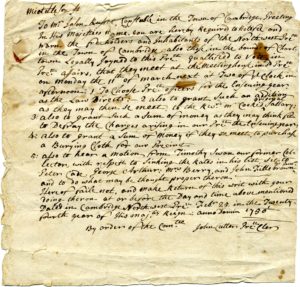 Middlesex Ss
To Mr. John Cutter Constable in the Town of Cambridge, Greeting
In his Majesties Name, you are hereby Required to Notifie and
warn the freeholders and Inhabitants of the Northwest Prec.
in the Town of Cambridge also those in the bound of Charles
town Legally Joyned to this Prec. Qualified to Vote in
Prec. affairs, that they meet at the Meetinghouse in sd Prec.
on Monday the of march next at Two of the Clock in
afternoon, 1 To Choose Prec. officers for the Ensuing year
as the Law Directs 2 also to grant such an
as they may think meet, for the Revd. mr. Cooke's Sallary,
3: also to grant such a Sum of money as they may think fit
to Defray the Charges arising in our Prec. the Ensuing year,
4: also to grant a Sum of money if they se meet, to purchas
a Burying Cloth for our Precinct
5: also to hear a motion, from Timothy Swan our former Col-
lector, with respect to sinking the Rates in his list, set to
Peter Cade, George Arthur, Mr. Berry, and John Fillebrown
and to do what may be thought proper theron.
Here of faile not, and make Return of this writ with your
doing theron at or before the Day and time above mentioned
Dated in Cambridge Northwest Prec. Feb. 22 in the Twenty
fourth year of his maj. Reign anno domini 1750
By orders of the Com.tte John Cutter Prec. Cler